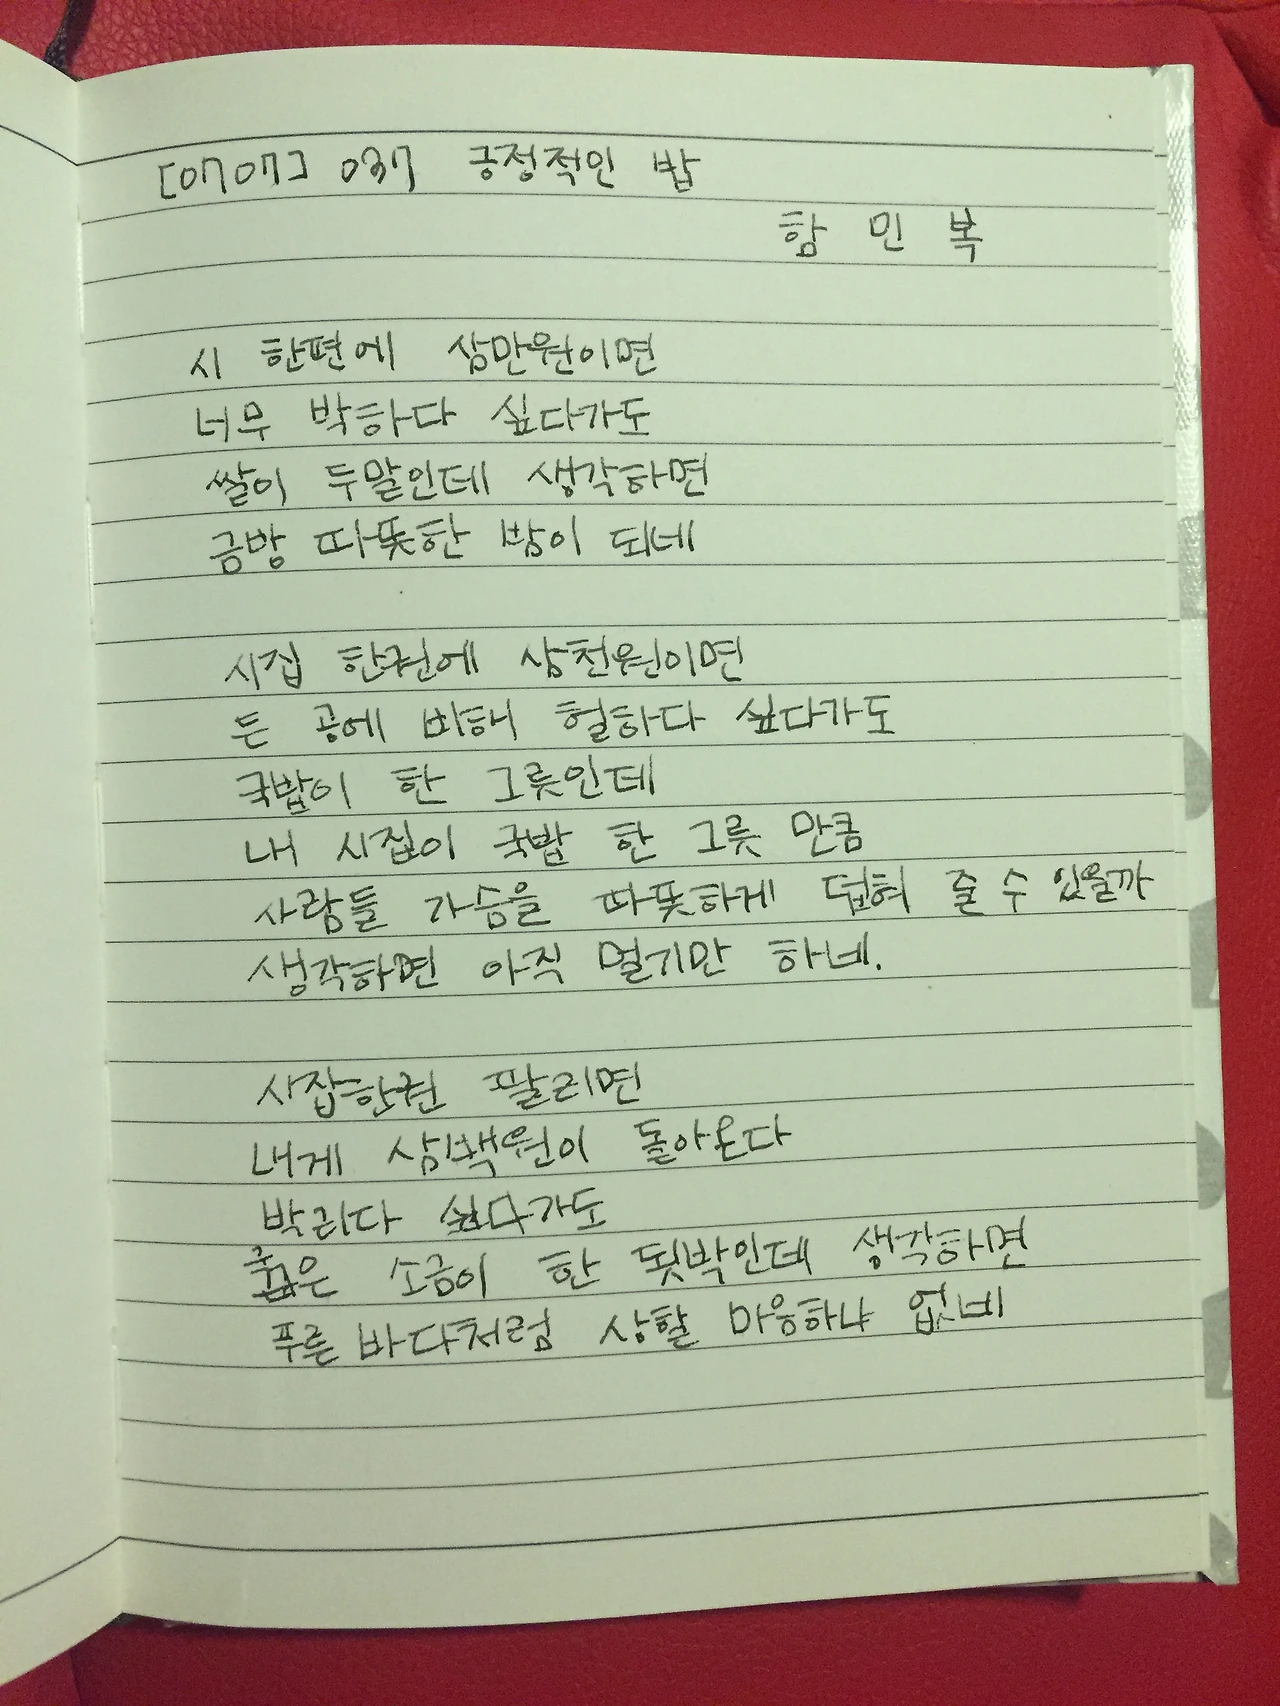 [0707] 037 긍정적인 밥
함 민 복
시 한편에 삼만원이면
너무 박하다 싶다가도
쌀이 두말인데 생각하면
금방 따뜻한 밥이 되네
시집 한권에 삼천원이면
든 공에 비해 헐하다 싶다가도
국밥이 한 그릇인데
내 시집이 국밥 한 그릇 만큼
사람들 가슴을 따뜻하게 덥혀 줄 수 있을까
생각하면 아직 멀기만 하네.
시집한권 팔리면
내게 삼백원이 돌아온다
박리다 싶다가도
굵은 소금이 한 됫박인데 생각하면
푸른 바다처럼 상할 마음하나 없네